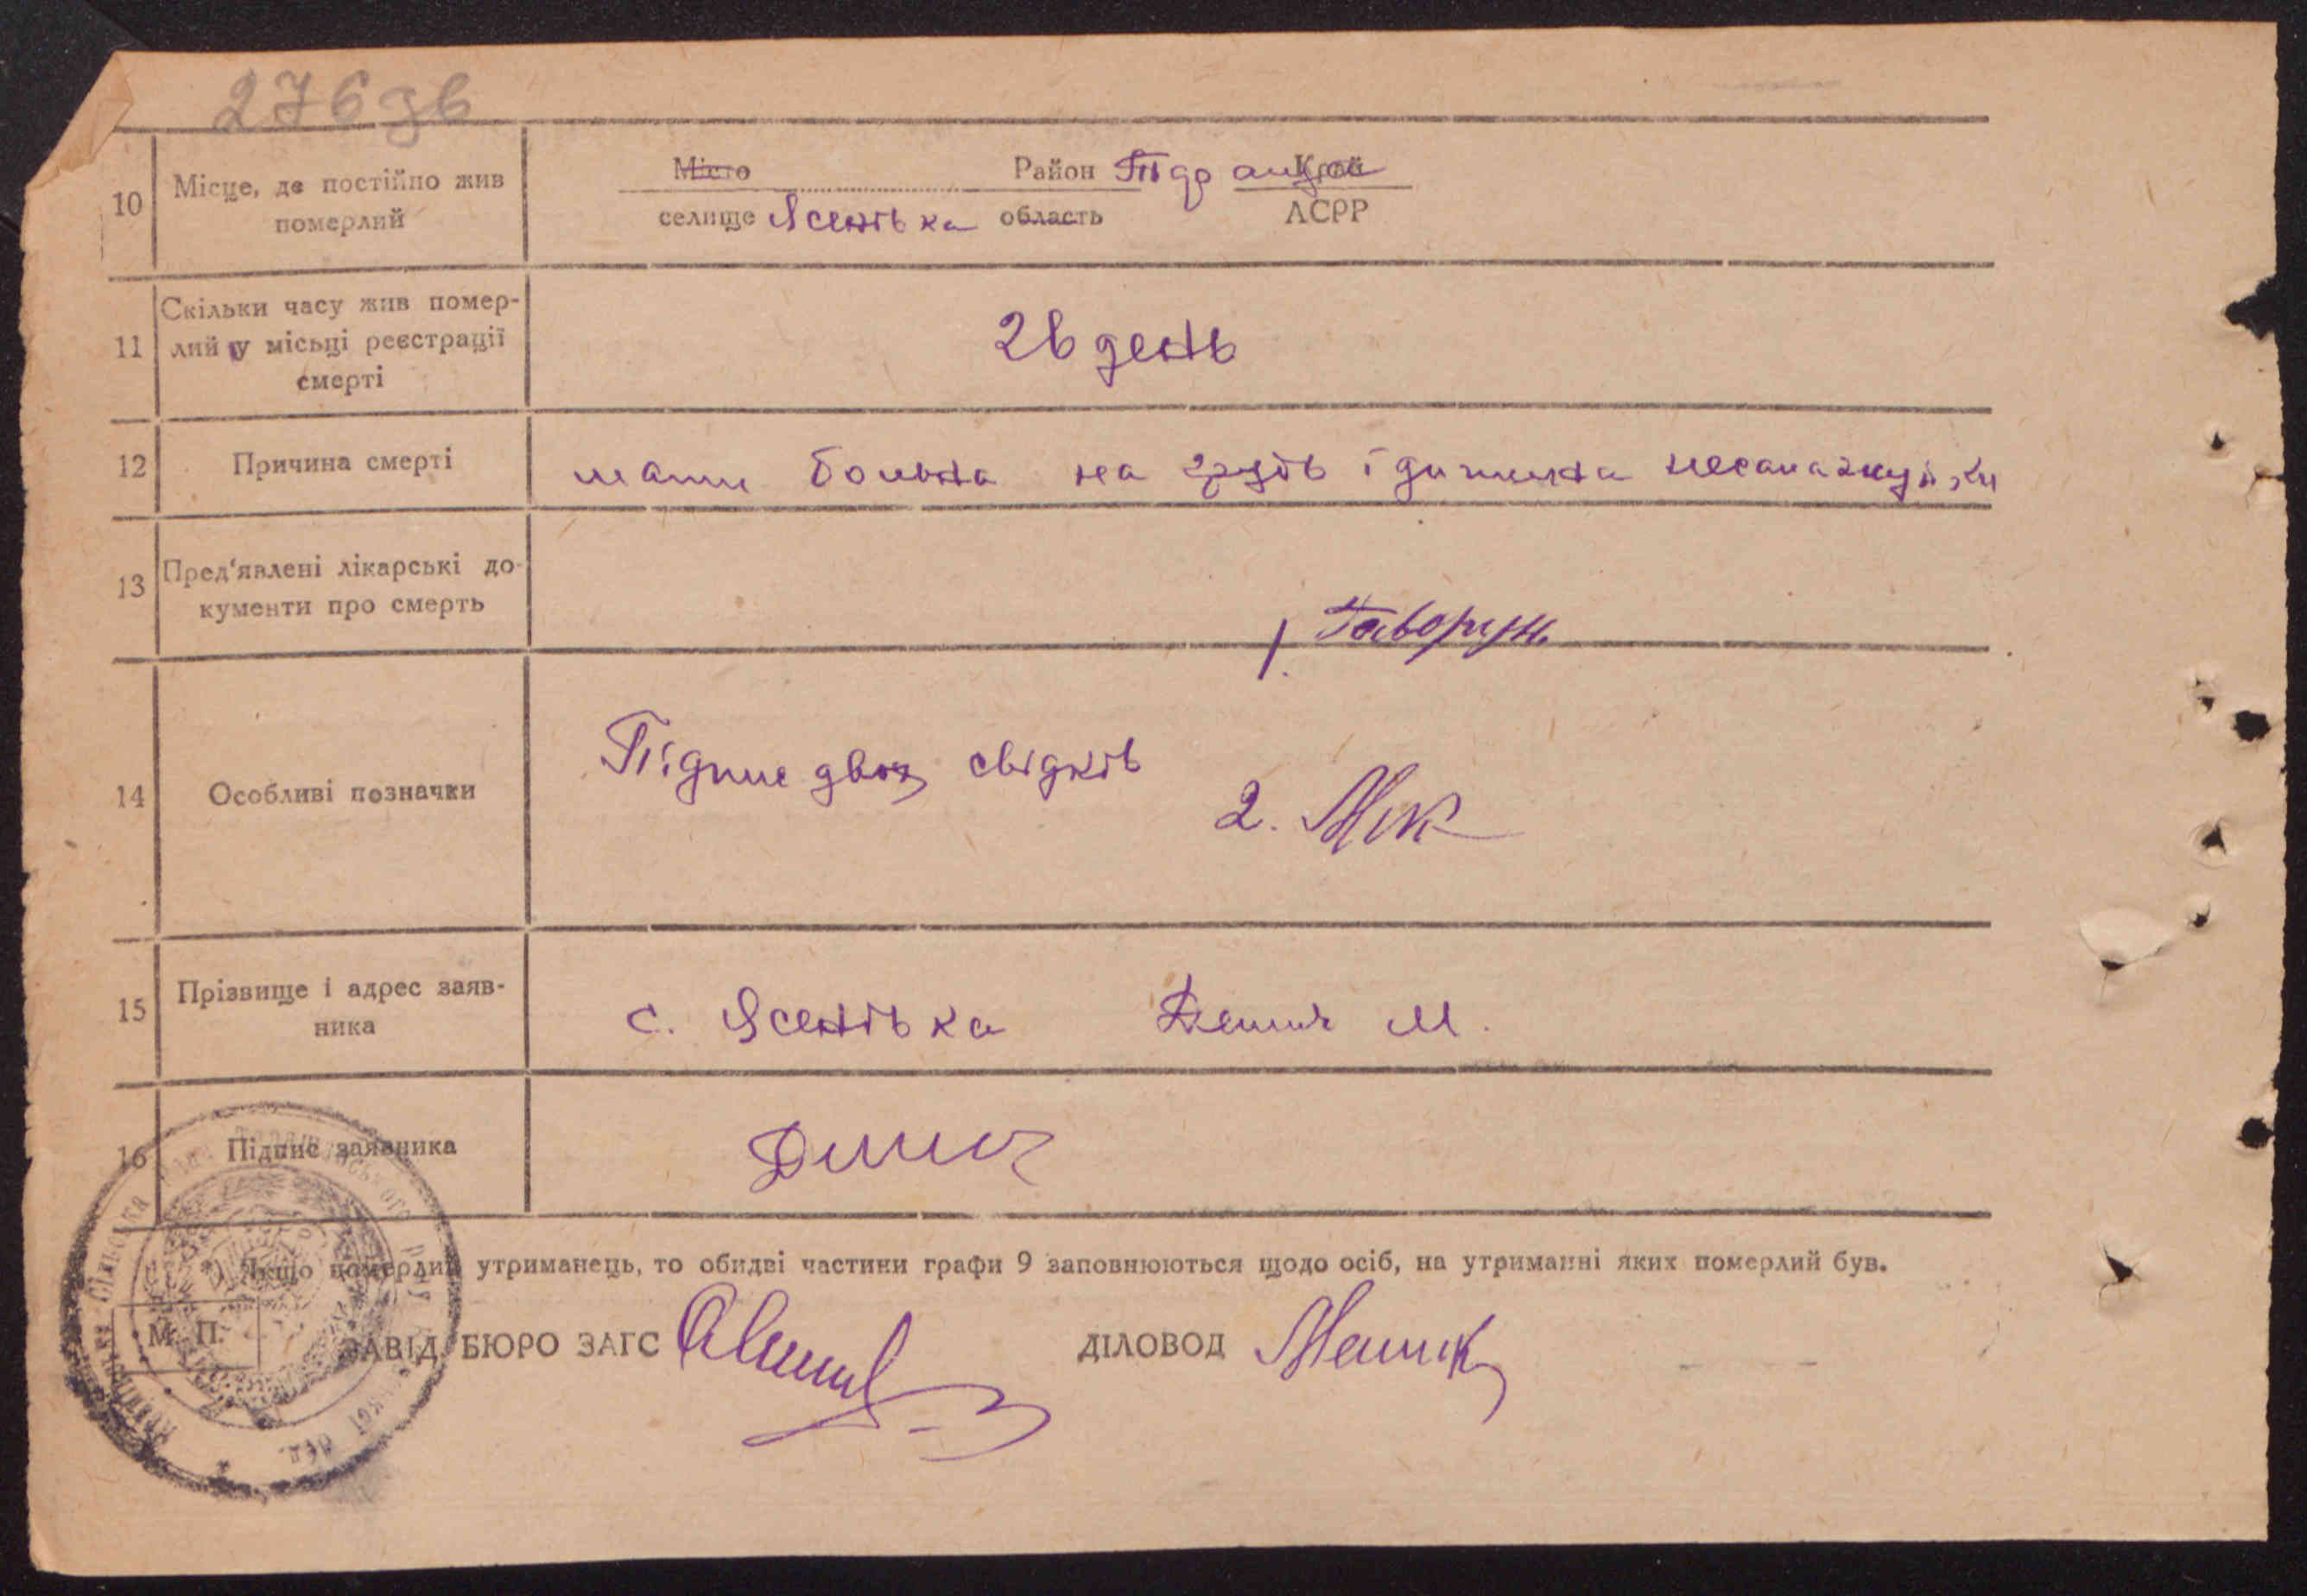 276зв
10 Місце, де постійно жив
померлий
Місто Район Край
селище Ясенівка область АСРР
11 Скільки часу жив помер-
лий у місьці реєстрації
смерті
26 день
12 Причина смерті
мати больна на грудь і дитина
13 Пред'явлені лікарські до-
кументи про смерть
1. Говорун
14 Особливі позначки
Підпис двох свідків
2.
15 Прізвище і адрес заяв-
ника
с. Ясенівка М.
16 Підпис заявника
Якщо померлий утриманець, то обидві частини графи 9 заповнюються щодо осіб, на утриманні яких померлий був.
М. П.
ЗАВІД. БЮРО ЗАГС ДІЛОВОД